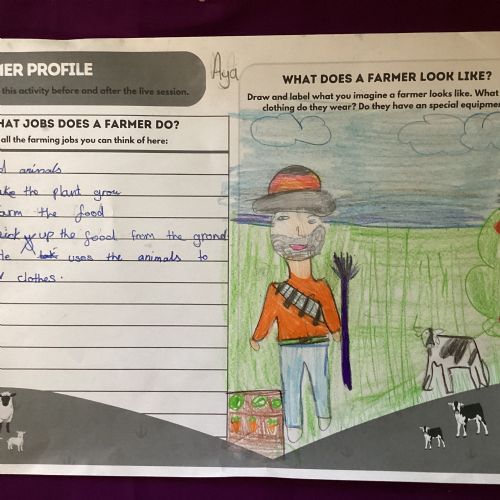 MER PROFILE
this activity before and after the live session.
HAT JOBS DOES A FARMER DO?
all the farming jobs you can think of here:
d animals
ake the plant grow
arm the food
pick up the food from the grond
te uses the animals to
clothes.
Aya
WHAT DOES A FARMER LOOK LIKE?
Draw and label what you imagine a farmer looks like. What
clothing do they wear? Do they have an special equipme